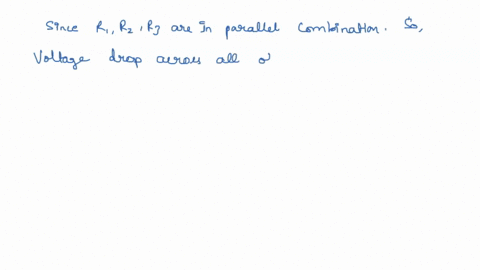 Since R1, R2, R3 are in parallel combination. So,
Voltage drop across all o